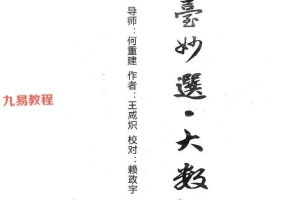 臺妙選·大数
导师：何重建 作者：王咸炽 校对：赖政宇
九易教程